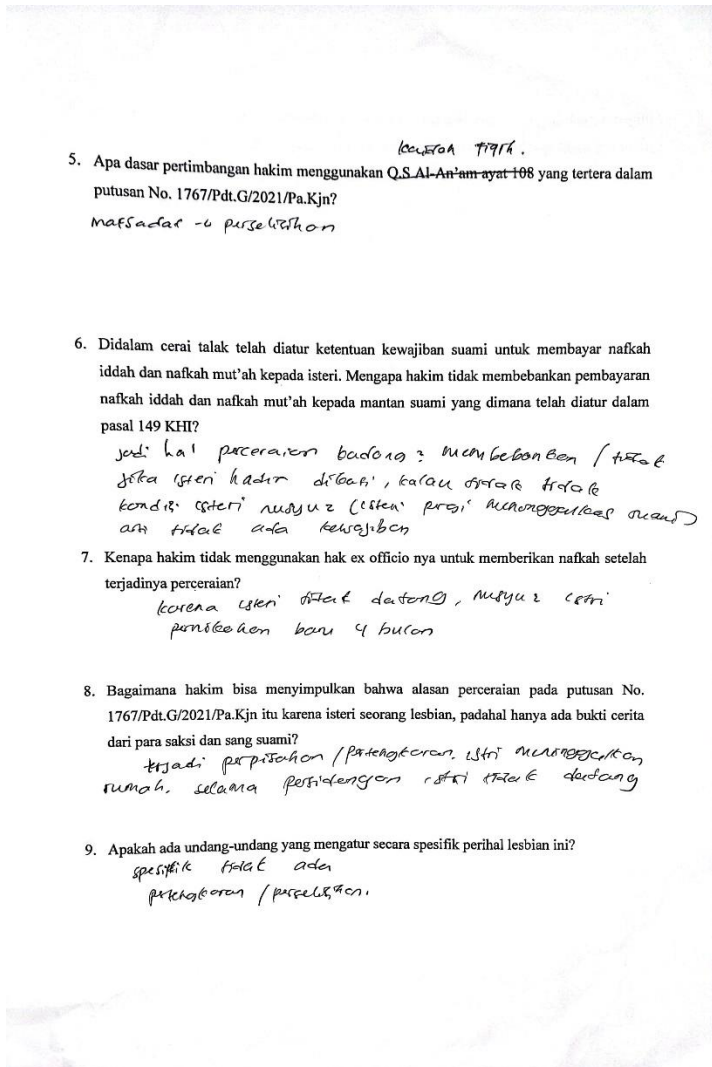 kaidah fiqih.
5. Apa dasar pertimbangan hakim menggunakan Q.S Al-An'am ayat 108 yang tertera dalam
putusan No. 1767/Pdt.G/2021/Pa.Kjn?
mafsadat perselisihan
6. Didalam cerai talak telah diatur ketentuan kewajiban suami untuk membayar nafkah
iddah dan nafkah mut'ah kepada isteri. Mengapa hakim tidak membebankan pembayaran
nafkah iddah dan nafkah mut'ah kepada mantan suami yang dimana telah diatur dalam
pasal 149 KHI?
jadi hal perceraian membebankan / tidak
jika isteri hadir dibagi, kalau tidak tidak
kondisi isteri nusyuz (isteri pergi meninggalkan suami)
tidak ada kewajiban
7. Kenapa hakim tidak menggunakan hak ex officio nya untuk memberikan nafkah setelah
terjadinya perceraian?
karena isteri tidak datang, nusyuz istri
pernikahan baru 4 bulan
8. Bagaimana hakim bisa menyimpulkan bahwa alasan perceraian pada putusan No.
1767/Pdt.G/2021/Pa.Kjn itu karena isteri seorang lesbian, padahal hanya ada bukti cerita
dari para saksi dan sang suami?
terjadi perpisahan / pertengkaran. istri meninggalkan
rumah. selama persidangan istri tidak datang
9. Apakah ada undang-undang yang mengatur secara spesifik perihal lesbian ini?
spesifik tidak ada
pertengkaran / perselisihan.